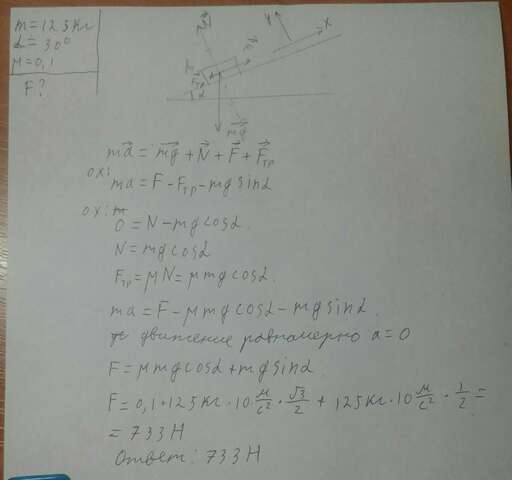 m=125 кг
α=30°
μ=0,1
F?
y
x
N
Fтр
α
mg
ma⃗ = mg⃗ + N⃗ + F⃗ + F⃗тр
ox:
ma = F - Fтр - mg sinα
ox: m
0 = N - mg cosα.
N = mg cosα
Fтр = μN = μmg cosα.
ma = F - μmg cosα - mg sinα.
движение равномерно a = 0
F = μmg cosα + mg sinα.
F = 0,1 · 125 кг · 10 м/с² · √3/2 + 125 кг · 10 м/с² · 1/2 =
= 733 Н
Ответ: 733 Н